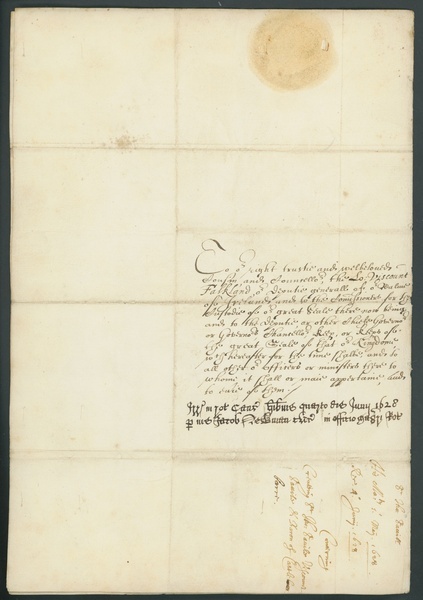 To oʳ right trustie and welbeloved
Cousin and Councellor, the Lo: Viscount
Falkland oʳ Deputie generall of oʳ Realme
of Ireland, and to the Comissioners for the
Custodie of oʳ great Seale there now being
and to the Deputie, or other Chiefe Governoʳ
or Governoʳˢ Chancellor, Keeper, or Keepers of
the great Seale of that oʳ Kingdome
wᶜʰ hereafter for the time shalbe, and to
all other oʳ officers or ministers there to
whome it shall or maie appertaine and
to everie of them
Irr in rot Canc Hibnie quarto die Junij 1628
p me Jacob Newman in officio Rot
Sʳ Cha:
May, 1628
4º Juny, 1628
Creating
Creating Sʳ Cha: